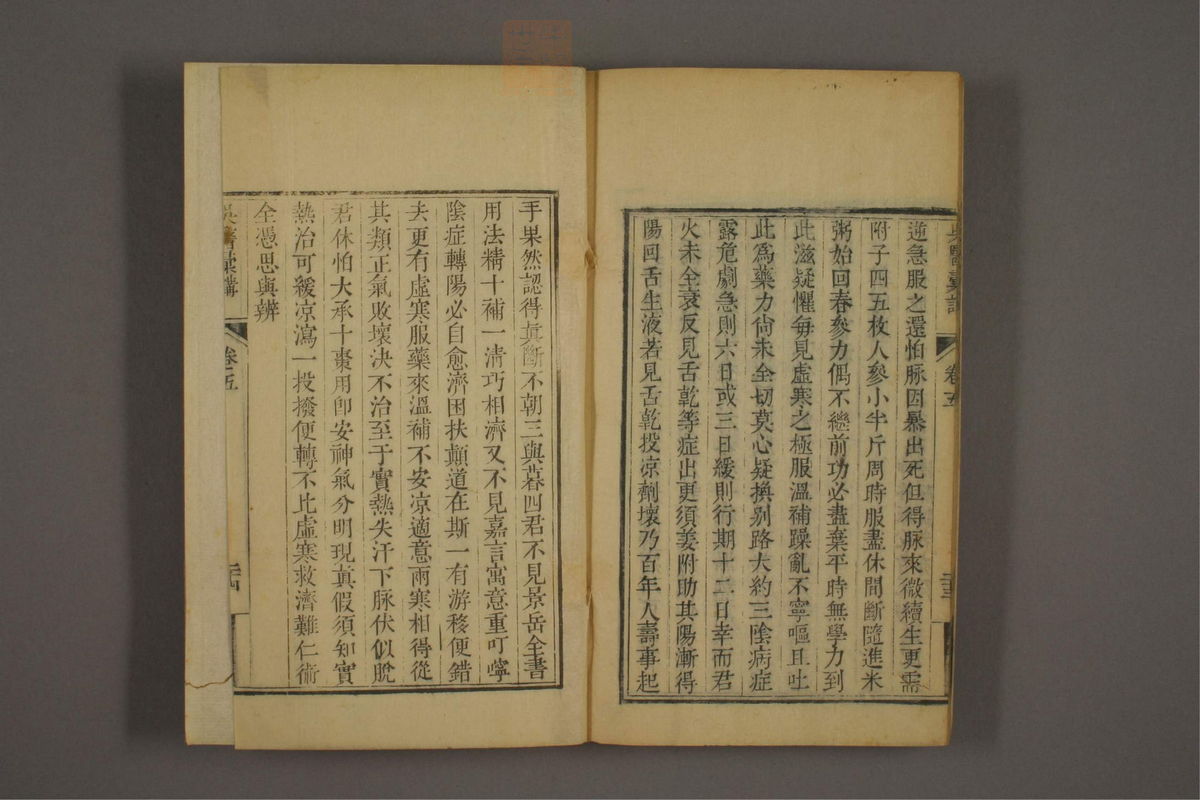 吳醫彙講
卷五
二十三
逆急服之還怕脉因暴出死但得脉來微續生更需
附子四五枚人參小半斤周時服盡休間斷隨進米
粥始回春參力偶不繼前功必盡棄平時無學力到
此滋疑懼每見虛寒之極服溫補躁亂不寧嘔且吐
此爲藥力尙未全切莫心疑換别路大約三陰病症
露危劇急則六日或三日緩則行期十二日幸而君
火未全衰反見舌乾等症出更須姜附助其陽漸得
陽回舌生液若見舌乾投凉劑壞乃百年人壽事起
手果然認得眞斷不朝三與暮四君不見景岳全書
用法精十補一淸巧相濟又不見嘉言寓意重叮嚀
陰症轉陽必自愈濟困扶顚道在斯一有游移便錯
去更有虛寒服藥來溫補不安凉適意兩寒相得從
其類正氣敗壞决不治至于實熱失汗下脉伏似脫
君休怕大承十棗用卽安神氣分明現眞假須知實
熱治可緩凉瀉一投撥便轉不比虛寒救濟難仁術
全憑思與辨
吳醫彙講
卷五
二十四